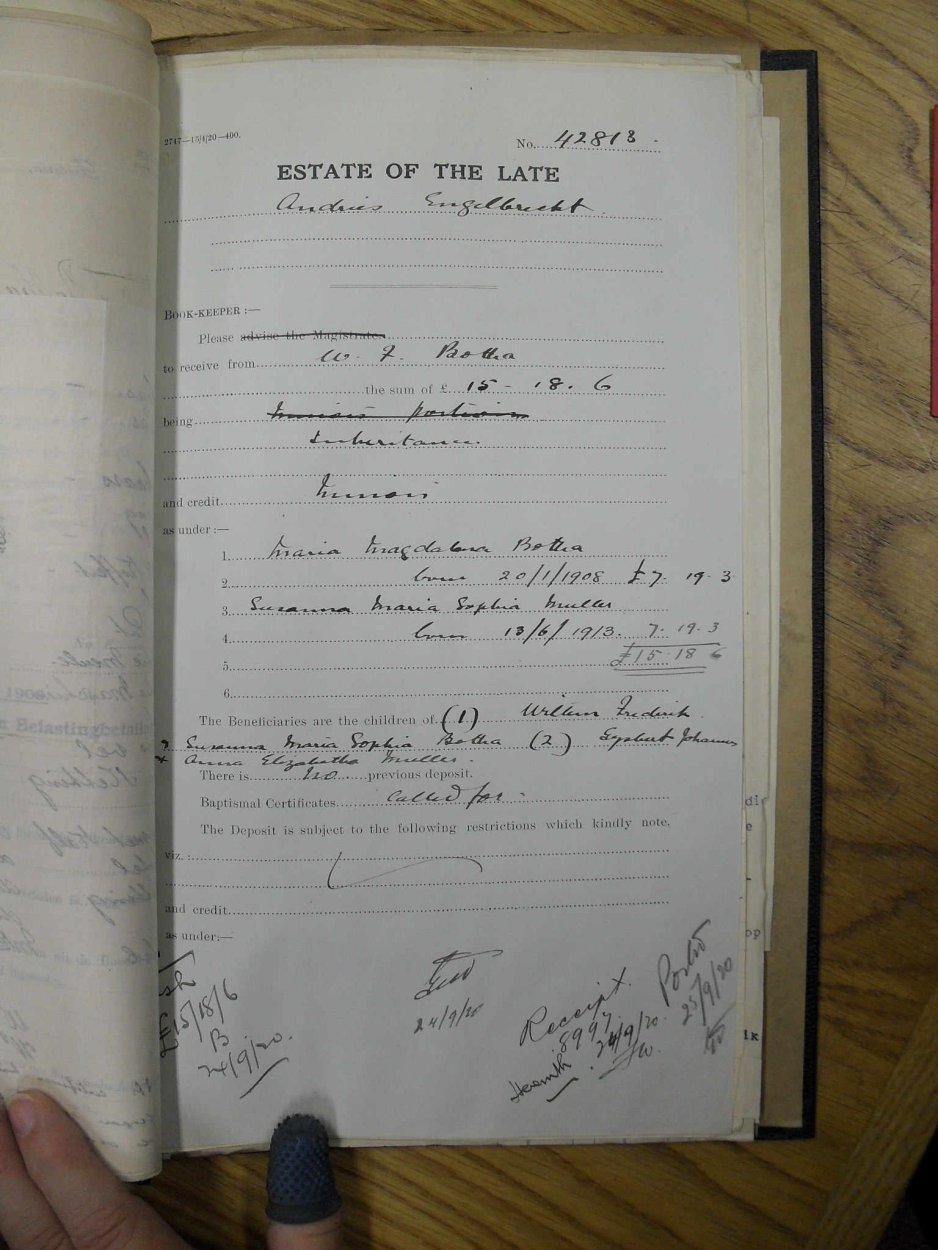 2747—15/4/20—400.
No. 42813.
ESTATE OF THE LATE
Andries Engelbrecht
BOOK-KEEPER :—
Please advise the Magistrate
to receive from W. F. Botha
the sum of £ 15 - 18. 6
being Minors portion
Inheritance
and credit Minors
as under :—
1. Maria Magdalena Botha
2. born 20/1/1908 £7. 19. 3
3. Susanna Maria Sophia Muller
4. born 13/6/1913. 7. 19. 3
5. £15. 18 6
6.
The Beneficiaries are the children of (1) Willem Frederik
& Susanna Maria Sophia Botha (2) Gysbert Johannes
& Anna Elizabetha Muller.
There is no previous deposit.
Baptismal Certificates called for.
The Deposit is subject to the following restrictions which kindly note,
viz. :
and credit
as under:—
£15/18/6
B
24/9/20.
24/9/20
Receipt.
8997
24/9/20.
Herewith
Posted
25/9/20